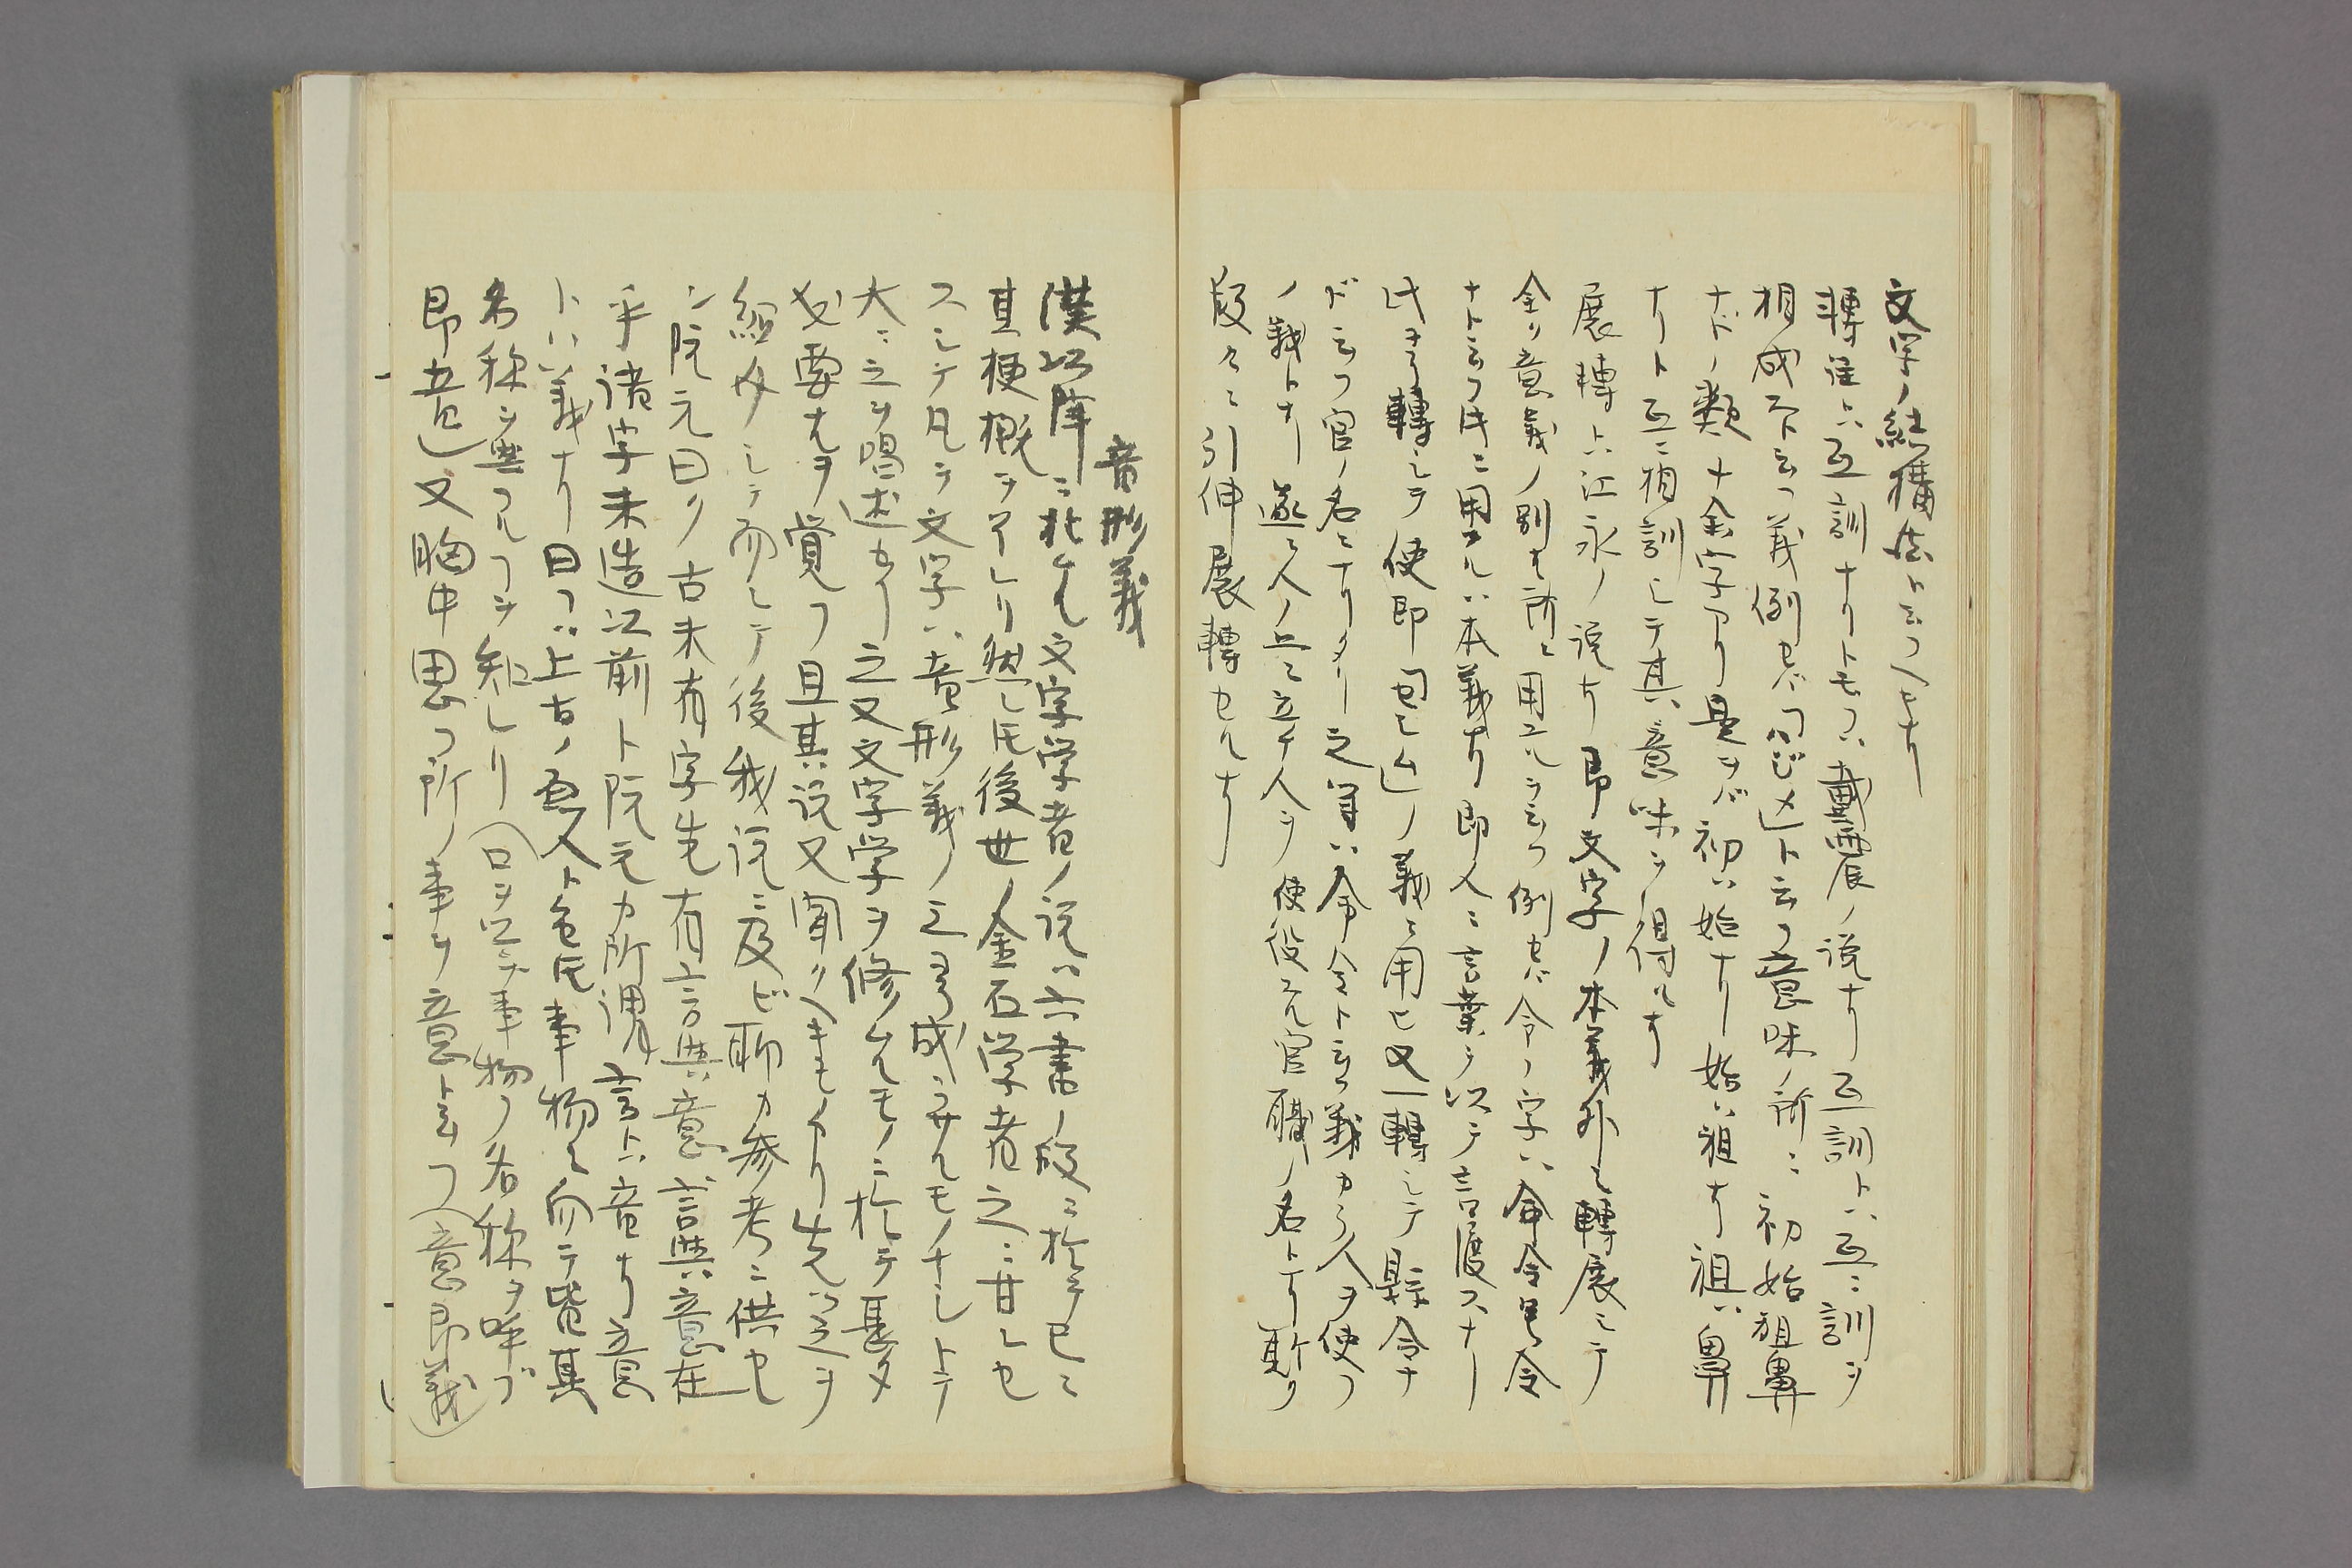 文字ノ結構法ト云フヘキナリ
轉注ハ互訓ナリトモフハ戴震ノ説ナリ互訓トハ互ニ訓ヲ
相成スト云フ義例セバ「ハジメ」ト云フ意味ノ所ニ初始祖鼻
ナドノ類十余字アリ是ヲバ初ハ始ナリ始ハ祖ナリ祖ハ鼻
ナリト互ニ相訓シテ其意味ヲ得ルナリ
展轉トハ江永ノ説ナリ即文字ノ本義外ニ轉展シテ
全ク意義ノ別ナル所ニ用エルヲ云フ例セバ令ノ字ハ命令号令
ナト云フ時ニ用フルハ本義ナリ即人ニ言葉ヲ以テ言渡スナリ
此ヨリ轉シテ使即「セシム」ノ義ニ用ヒ又一轉シテ縣令ナ
ド云フ官ノ名ニナリタリ之等ハ命令ト云フ義カラ人ヲ使フ
ノ義トナリ遂ニ人ノ上ニ立チ人ヲ使役スル官職ノ名トナリ斯ク
段々ニ引伸展轉セルナリ
音形義
漢以降ニ於ケル文字学者ノ説ハ六書ノ段ニ於テ已ニ
其梗概ヲ了レリ然レ𪜈後世ノ金石学者之ニ甘ンセ
スシテ凡テ文字ハ音形義ノ三ヨリ成ラザルモノナシトテ
大ニ之ヲ唱述セリ之又文字学ヲ修ムルモノニ於テ甚タ
必要ナルヲ覚フ且其説又聞クヘキモノアリ先ツ之ヲ
紹介シテ而シテ後我説ニ及ビ聊カ参考ニ供セ
ン阮元曰ク古未有字先有言與意言與意在
乎諸字未造以前ト阮元カ所謂言トハ音ナリ意
トハ義ナリ曰フハ上古ノ愚人ト色𪜈事物ニ向テ皆其
名称ヲ與フルコヲ知レリ（口ヲ以テ事物ノ名称ヲ呼ブ
即音）又胸中思フ所ノ事ヲ意ト云フ（意即義）